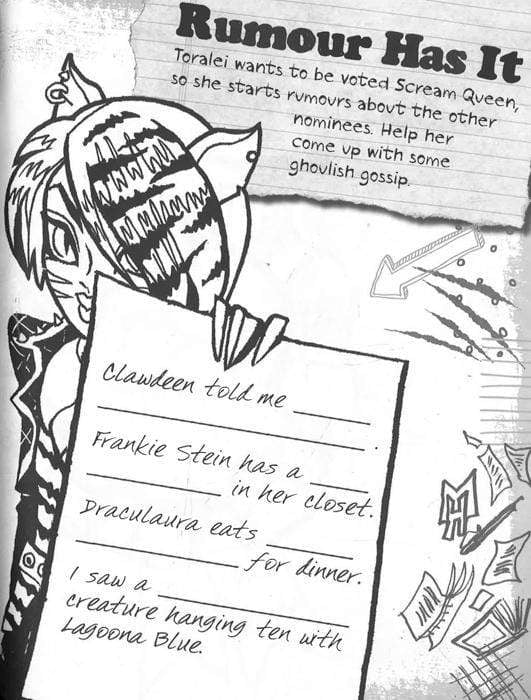 Rumour Has It
Toralei wants to be voted Scream Queen,
so she starts rumours about the other
nominees. Help her
come up with some
ghoulish gossip.
Clawdeen told me ______
______.
Frankie Stein has a ______
______ in her closet.
Draculaura eats ______
______ for dinner.
I saw a ______
creature hanging ten with
Lagoona Blue.
M